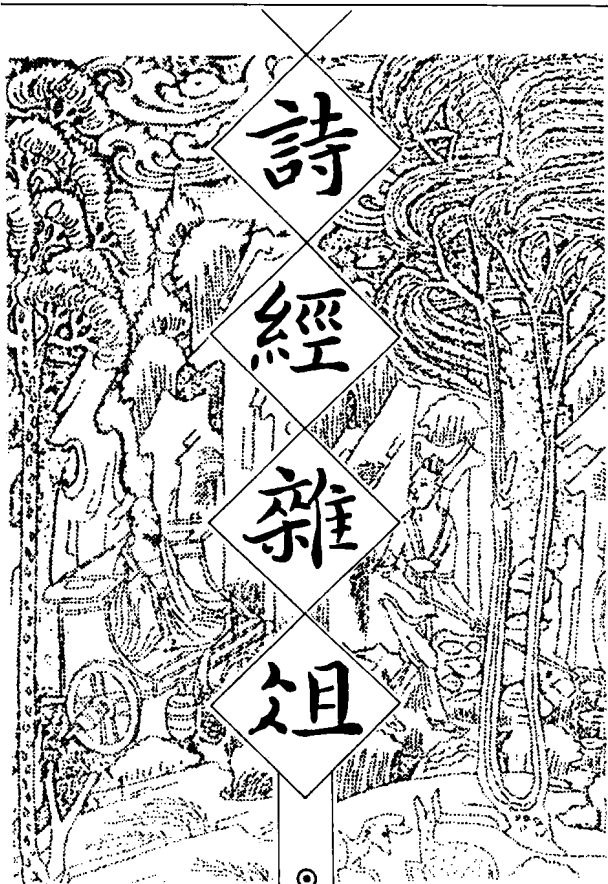 詩經雜俎